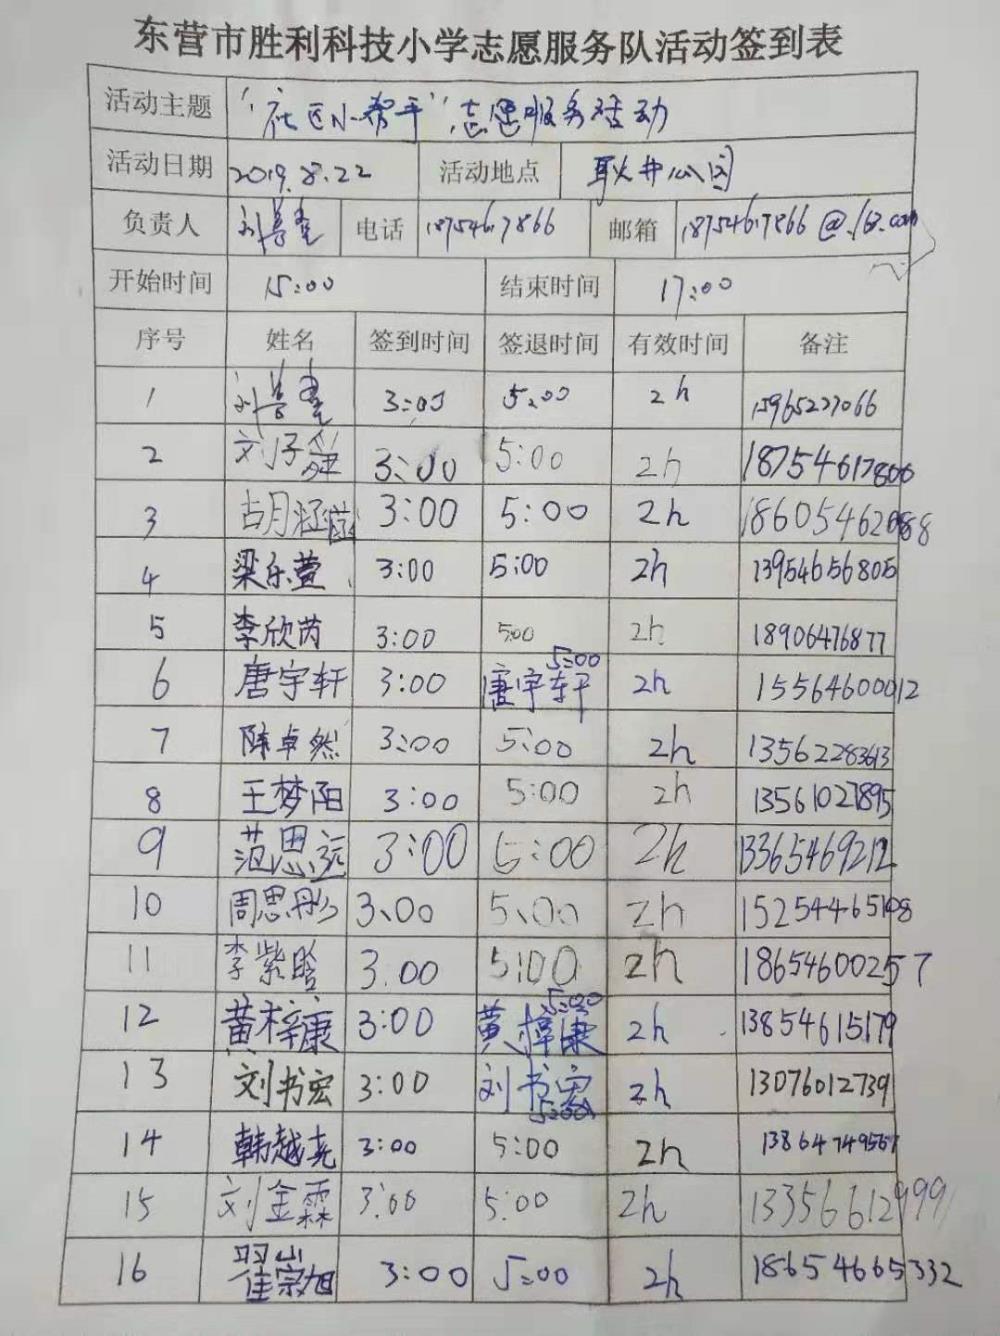 东营市胜利科技小学志愿服务队活动签到表
活动主题 “社区小帮手”志愿服务活动
活动日期 2019.8.22 活动地点 耿井公园
负责人 刘 电话 18754617866 邮箱 18754617866@163.com
开始时间 15:00 结束时间 17:00
序号 姓名 签到时间 签退时间 有效时间 备注
1 刘 3:00 5:00 2h 15965227066
2 刘子 3:00 5:00 2h 18754617866
3 胡涵 3:00 5:00 2h 18605462088
4 梁乐萱 3:00 5:00 2h 13954656805
5 李欣芮 3:00 5:00 2h 18906476877
6 唐宇轩 3:00 唐宇轩 5:00 2h 15564600012
7 陈卓然 3:00 5:00 2h 13562283613
8 王梦阳 3:00 5:00 2h 13561027895
9 范思远 3:00 5:00 2h 13365469212
10 周思彤 3:00 5:00 2h 15254465108
11 李紫晗 3:00 5:00 2h 18654600257
12 黄梓康 3:00 黄梓康 5:00 2h 13854615179
13 刘书宏 3:00 刘书宏 5:00 2h 13076012739
14 韩越尧 3:00 5:00 2h 13864749567
15 刘金霖 3:00 5:00 2h 13356612999
16 翟崇旭 3:00 5:00 2h 18654665332